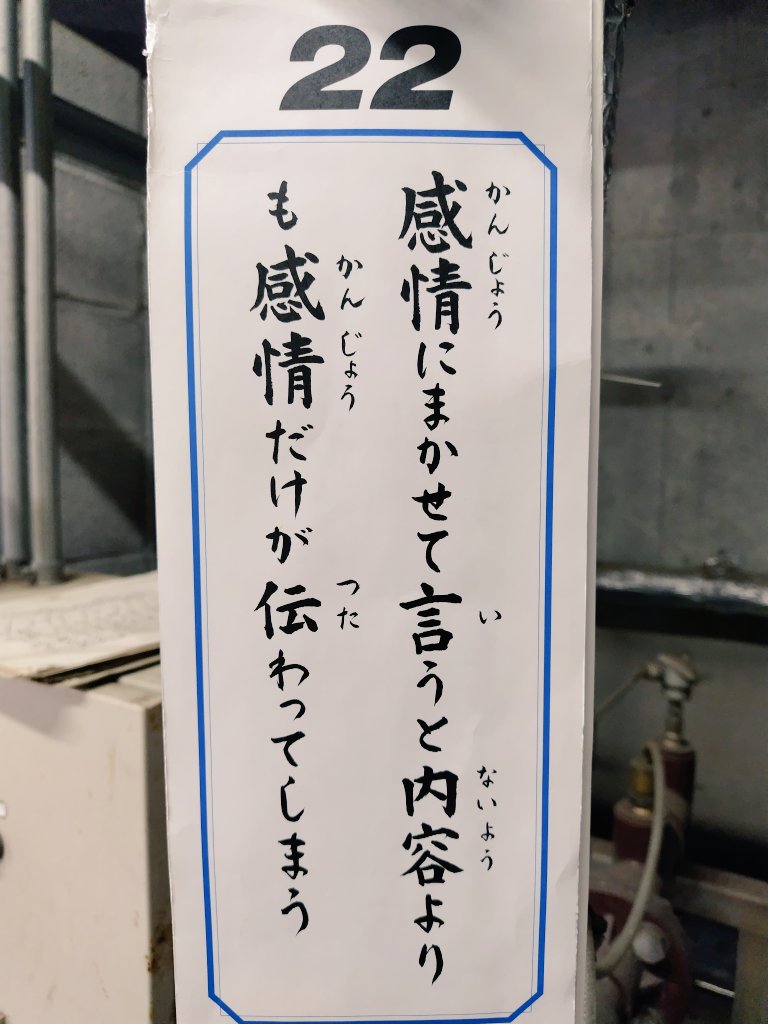 22
感情にまかせて言うと内容より
かんじょう
い
ないよう
も感情だけが伝わってしまう
かんじょう
つた